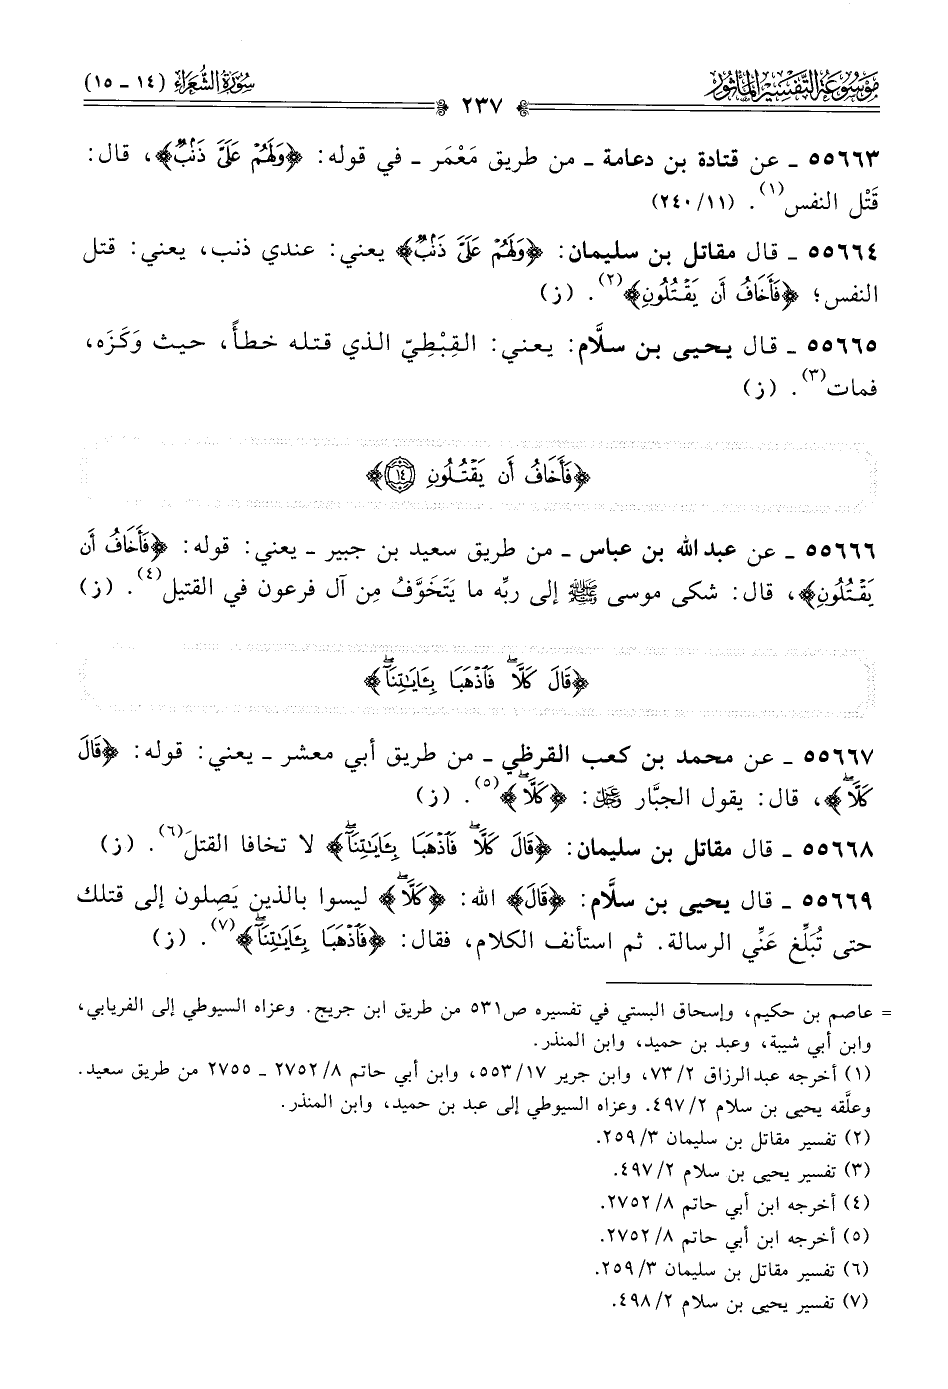 موسوعة التفسير المأثور
سورة الشعراء (١٤ - ١٥)
٢٣٧
٥٥٦٦٣ ـ عن قتادة بن دعامة ـ من طريق مَعْمَر ـ في قوله: ﴿وَلَهُمْ عَلَىَّ ذَنۢبٌ﴾، قال:
قَتْل النفس(١). (٢٤٠/١١)
٥٥٦٦٤ ـ قال مقاتل بن سليمان: ﴿وَلَهُمْ عَلَىَّ ذَنۢبٌ﴾ يعني: عندي ذنب، يعني: قتل
النفس؛ ﴿فَأَخَافُ أَن يَقْتُلُونِ﴾(٢). (ز)
٥٥٦٦٥ ـ قال يحيى بن سلَّام: يعني: القِبْطِيّ الذي قتله خطأً، حيث وَكَزَه،
فمات(٣). (ز)
﴿فَأَخَافُ أَن يَقْتُلُونِ ١٤﴾
٥٥٦٦٦ ـ عن عبد الله بن عباس ـ من طريق سعيد بن جبير ـ يعني: قوله: ﴿فَأَخَافُ أَن
يَقْتُلُونِ﴾، قال: شكى موسى ﷺ إلى ربِّه ما يَتَخَوَّفُ مِن آل فرعون في القتيل(٤). (ز)
﴿قَالَ كَلَّاۖ فَٱذْهَبَا بِـَٔايَٰتِنَآۖ﴾
٥٥٦٦٧ ـ عن محمد بن كعب القرظي ـ من طريق أبي معشر ـ يعني: قوله: ﴿قَالَ
كَلَّاۖ﴾، قال: يقول الجبَّار ﷿: ﴿كَلَّاۖ﴾(٥). (ز)
٥٥٦٦٨ ـ قال مقاتل بن سليمان: ﴿قَالَ كَلَّاۖ فَٱذْهَبَا بِـَٔايَٰتِنَآۖ﴾ لا تخافا القتلَ(٦). (ز)
٥٥٦٦٩ ـ قال يحيى بن سلَّام: ﴿قَالَ﴾ الله: ﴿كَلَّاۖ﴾ ليسوا بالذين يَصِلون إلى قتلك
حتى تُبَلِّغ عَنِّي الرسالة. ثم استأنف الكلام، فقال: ﴿فَٱذْهَبَا بِـَٔايَٰتِنَآۖ﴾(٧). (ز)
= عاصم بن حكيم، وإسحاق البستي في تفسيره ص٥٣١ من طريق ابن جريج. وعزاه السيوطي إلى الفريابي،
وابن أبي شيبة، وعبد بن حميد، وابن المنذر.
(١) أخرجه عبدالرزاق ٧٣/٢، وابن جرير ٥٥٣/١٧، وابن أبي حاتم ٢٧٥٢/٨ ـ ٢٧٥٥ من طريق سعيد.
وعلَّقه يحيى بن سلام ٤٩٧/٢. وعزاه السيوطي إلى عبد بن حميد، وابن المنذر.
(٢) تفسير مقاتل بن سليمان ٢٥٩/٣.
(٣) تفسير يحيى بن سلام ٤٩٧/٢.
(٤) أخرجه ابن أبي حاتم ٢٧٥٢/٨.
(٥) أخرجه ابن أبي حاتم ٢٧٥٢/٨.
(٦) تفسير مقاتل بن سليمان ٢٥٩/٣.
(٧) تفسير يحيى بن سلام ٤٩٨/٢.